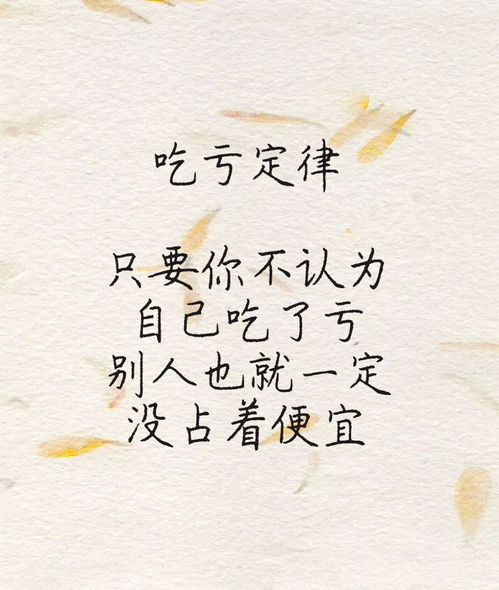 吃亏定律
只要你不认为
自己吃了亏
别人也就一定
没占着便宜